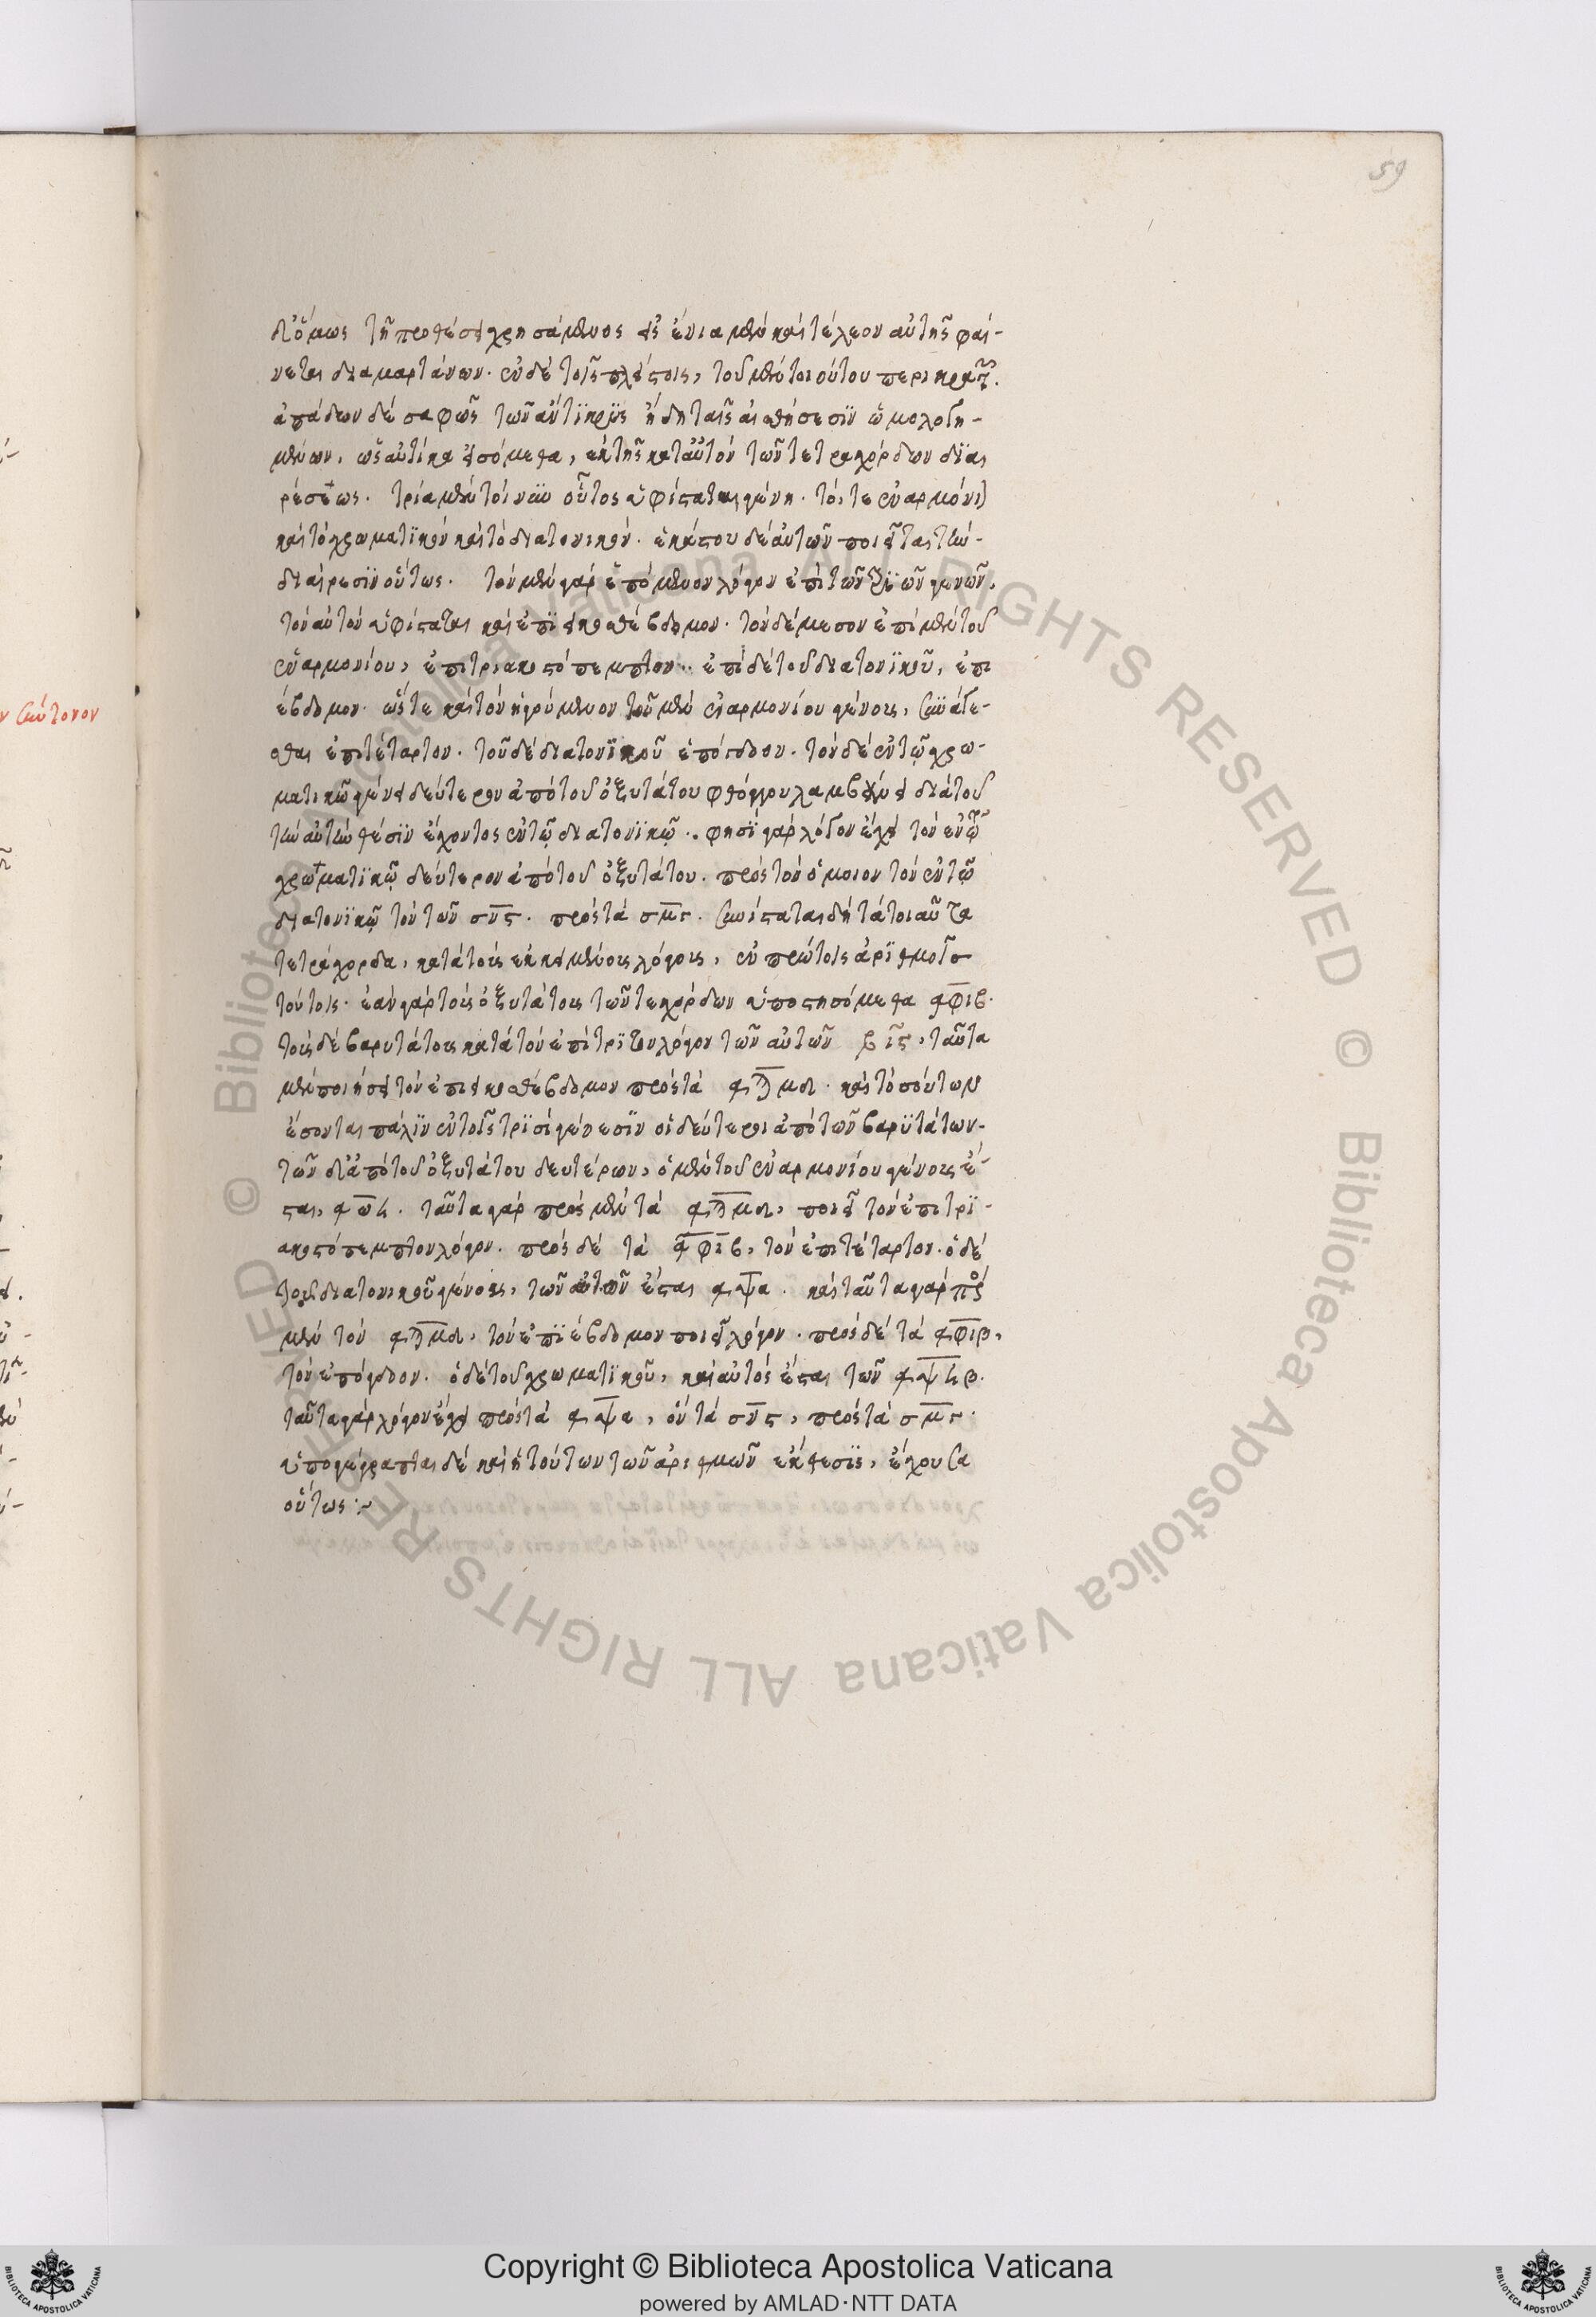 59
δ' ὅμως τῆ προθέσει χρησάμενος εἰς ἔνια μὲν καὶ τέλεον αὐτῆς φαί-
νεται διαμαρτάνων. ἐν δὲ τοῖς πλείστοις, τοῦ μὲν τοιούτου περικρατ.
ἀπάδων δὲ σαφῶς τῶν ἀντϊκρῢς ἤδη ταῖς αἰσθήσεσϊν ὡμολογη-
μένων, ὡς αὐτίκα εἰσόμεθα, ἐκ τῆς κατ' αὐτὸν τῶν τετραχόρδων δϊαι
ρέσεως. τρία μὲν τοίνϋν οὗτος ὑφίσταται γένη. τό, τε ἐναρμόνι
καὶ τὸ χρωματϊκὸν καὶ τὸ διατονικόν. ἑκάστου δὲ αὐτῶν ποιεῖται τὴν
διαίρεσϊν οὕτως. τὸν μὲν γὰρ ἑπόμενον λόγον ἐπὶ τῶν τρϊῶν γενῶν,
τὸν αὐτὸν ὑφίσταται καὶ ἐπϊεικοσθέβδομον. τὸν δὲ μέσον ἐπὶ μὲν τοῦ
ἐναρμονίου, ἐπιτριακοστόπεμπτον. ἐπὶ δὲ τοῦ διατονϊκοῦ, ἐπι
έβδομον. ὥστε καὶ τὸν ἡγούμενον τοῦ μὲν ἐναρμονίου γένους, συνάγε-
σθαι ἐπιτέταρτον. τοῦ δὲ διατονϊκοῦ ἐπόγδοον. τὸν δὲ ἐν τῷ χρω-
ματικῶ γένει δεύτερον ἀπὸ τοῦ ὀξυτάτου φθόγγου λαμβάνει διὰ τοῦ
τὴν αὐτὴν θέσϊν ἔχοντος ἐν τῷ διατονϊκῷ. φησϊ γὰρ λόγον ἔχειν τὸν ἐν τῷ
χρωματϊκῷ δεύτερον ἀπὸ τοῦ ὀξυτάτου. πρὸς τὸν ὅμοιον τὸν ἐν τῷ
διατονϊκῷ τὸν τῶν σνϛ. πρὸς τὰ σμγ. συνίσταται δὴ τὰ τοιαῦτα
τετράχορδα, κατὰ τοὺς ἐκκειμένους λόγους, ἐν πρώτοις ἀρϊθμοῖς
τούτοις. ἐὰν γὰρ τοὺς ὀξυτάτους τῶν τεχόρδων ὑποστησόμεθα ͵αφιβ.
τοὺς δὲ βαρυτάτους κατὰ τὸν ἐπίτρϊτον λόγον τῶν αὐτῶν ͵βιϛ, ταῦτα
μὲν ποιήσει τὸν ἐπιεικοσθέβδομον πρὸς τὰ ͵αϡμδ. καὶ τοσούτων
ἔσονται πάλϊν ἐν τοῖς τρϊσὶ γένεσϊν οἱ δεύτεροι ἀπὸ τῶν βαρϋτάτων.
τῶν δ' ἀπὸ τοῦ ὀξυτάτου δευτέρων, ὁ μὲν τοῦ ἐναρμονίου γένους ἔ-
σται, ͵αωϟ. ταῦτα γὰρ πρὸς μὲν τὰ ͵αϡμδ, ποιεῖ τὸν ἐπιτρϊ-
ακοστόπεμπτον λόγον. πρὸς δὲ τὰ ͵αφιβ, τὸν ἐπιτέταρτον. ὁ δὲ
τοῦ διατονικοῦ γένους, τῶν αὐτῶν ἔσται ͵αψα. καὶ ταῦτα γὰρ πρὸς
μὲν τὸν ͵αϡμδ, τὸν ἐπϊέβδομον ποιεῖ λόγον. πρὸς δὲ τὰ ͵αφιβ,
τὸν ἐπόγδοον. ὁ δὲ τοῦ χρωματϊκοῦ, καὶ αὐτὸς ἔσται τῶν ͵αψϟβ.
ταῦτα γὰρ λόγον ἔχει πρὸς τὰ ͵αψα, ὃν τὰ σνϛ, πρὸς τὰ σμγ.
ὑπογέγραπται δὲ καὶ ἡ τούτων τῶν ἀριθμῶν ἔκθεσϊς, ἔχουσα
οὕτως:~
ν σύντονον
Copyright © Biblioteca Apostolica Vaticana
powered by AMLAD·NTT DATA